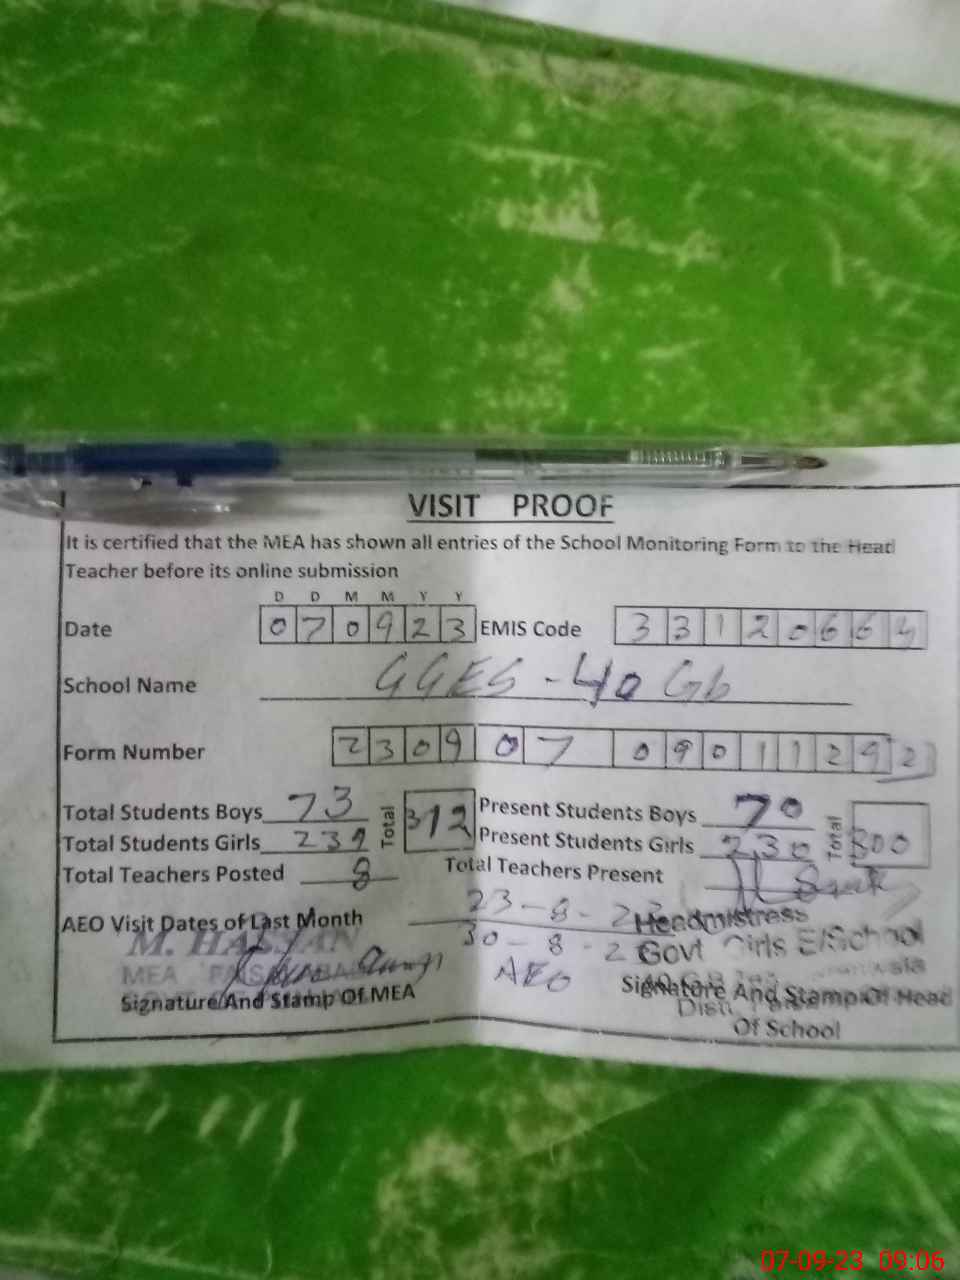 VISIT PROOF
It is certified that the MEA has shown all entries of the School Monitoring Form to the Head
Teacher before its online submission
D D M M Y Y
Date 070923 EMIS Code 33120664
School Name GGES - 40 Gb
Form Number 2309 07 09011292
Total Students Boys 73 Total 312 Present Students Boys 70 Total 300
Total Students Girls 239 Present Students Girls 230
Total Teachers Posted 8 Total Teachers Present 8
AEO Visit Dates of Last Month 23-8-23
30-8-2
AEO
Headmistress
Govt Girls E/School
M. HASSAN
MEA FAISALABAD
Signature And Stamp Of MEA
Signature And Stamp Of Head
Of School
07-09-23 09:06